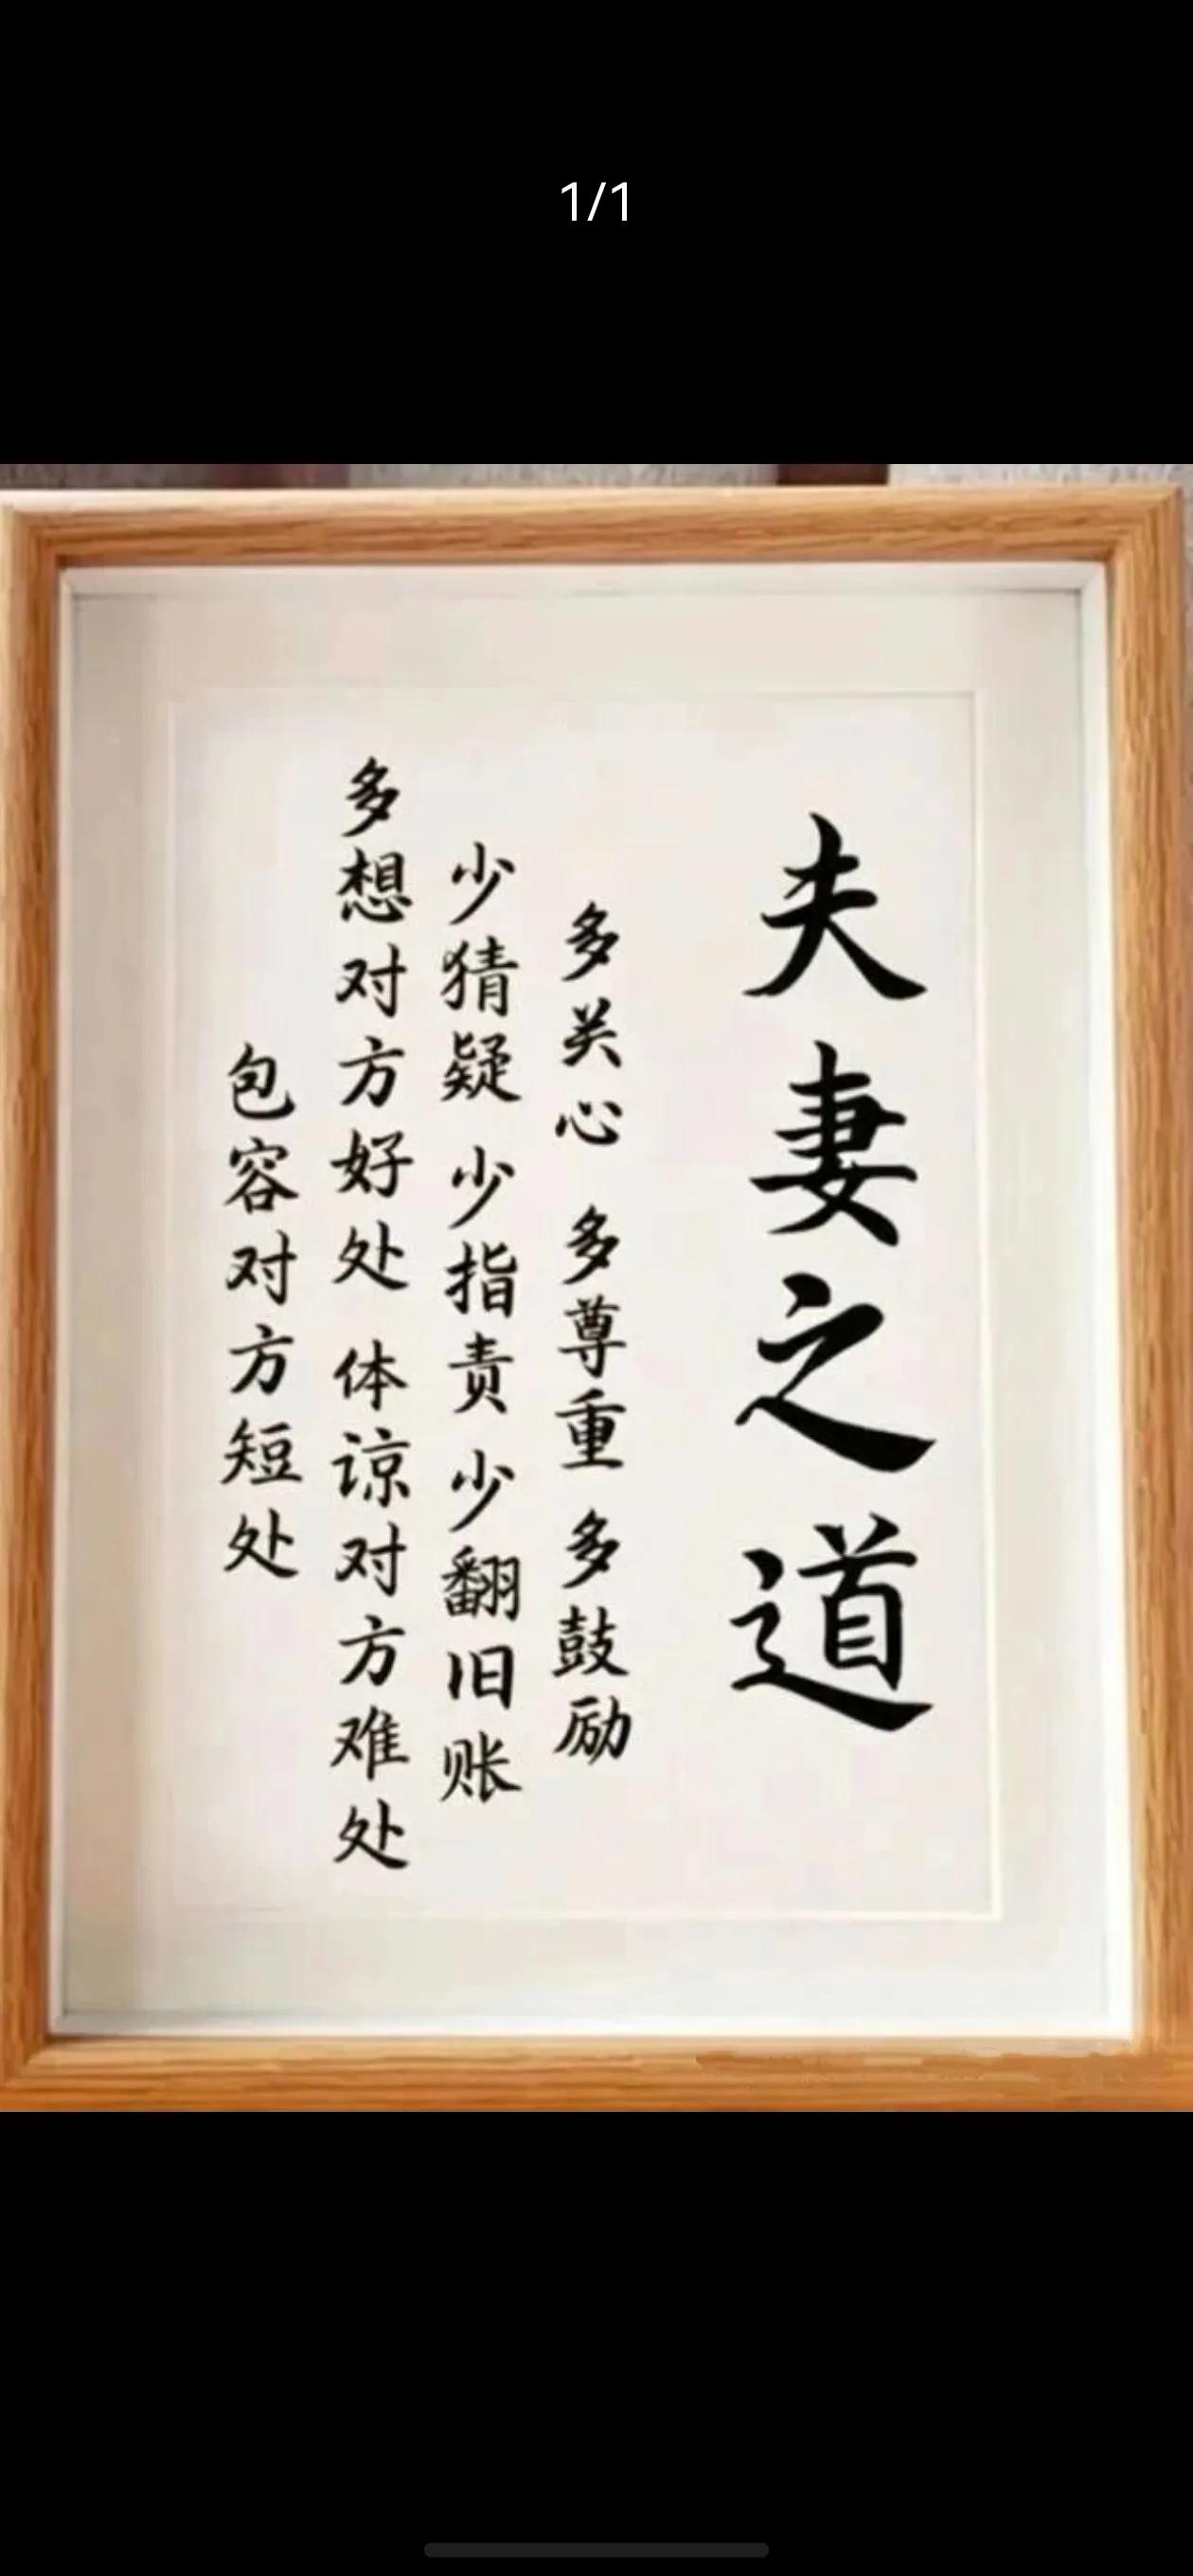 1/1
夫妻之道
多关心 多尊重 多鼓励
少猜疑 少指责 少翻旧账
多想对方好处 体谅对方难处
包容对方短处